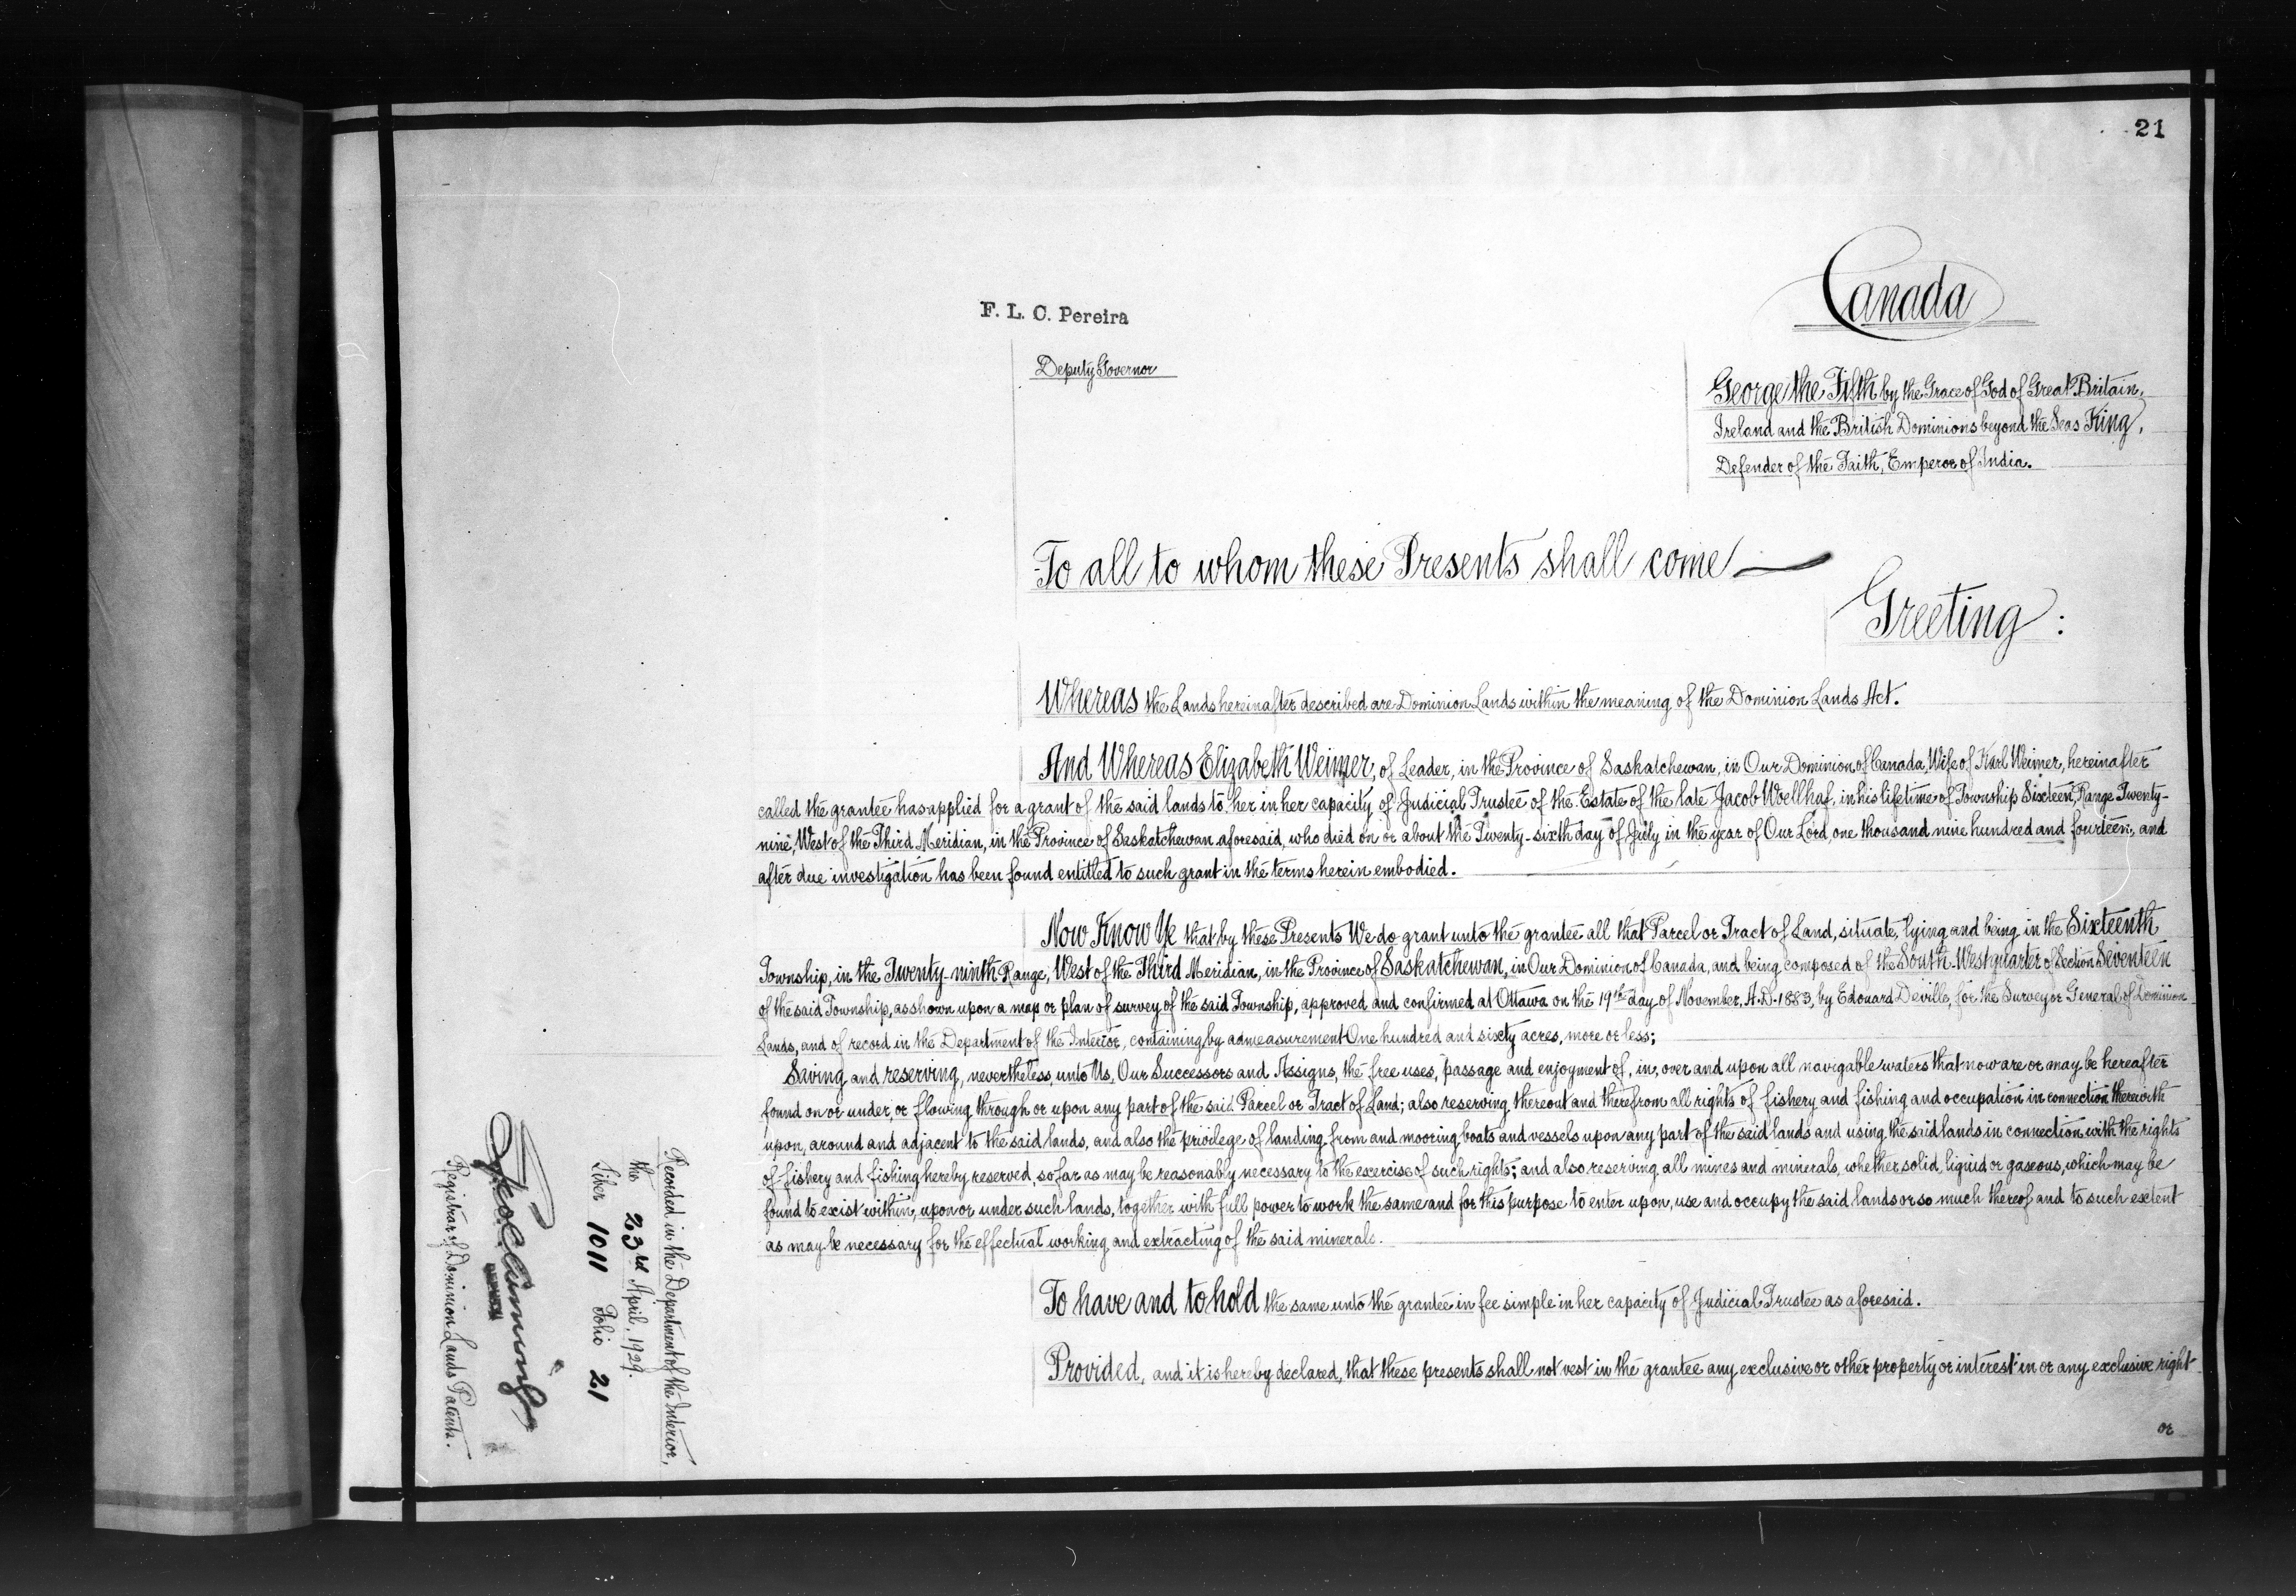 21
Canada
F. L. C. Pereira
Deputy Governor
George the Fifth by the Grace of God of Great Britain,
Ireland and the British Dominions beyond the Seas King,
Defender of the Faith, Emperor of India.
To all to whom these Presents shall come
Greeting:
Whereas the Lands hereinafter described are Dominion Lands within the meaning of the Dominion Lands Act.
And Whereas Elizabeth Weimer, of Leader, in the Province of Saskatchewan, in Our Dominion of Canada, Wife of Karl Weimer, hereinafter
called the grantee has applied for a grant of the said lands to her in her capacity of Judicial Trustee of the Estate of the late Jacob Woellhaf, in his lifetime of Township Sixteen, Range Twenty-
nine, West of the Third Meridian, in the Province of Saskatchewan aforesaid, who died on or about the Twenty-sixth day of July in the year of Our Lord, one thousand nine hundred and fourteen, and
after due investigation has been found entitled to such grant in the terms herein embodied.
Now Know Ye that by these Presents We do grant unto the grantee all that Parcel or Tract of Land, situate, lying and being in the Sixteenth
Township, in the Twenty-ninth Range, West of the Third Meridian, in the Province of Saskatchewan, in Our Dominion of Canada, and being composed of the South-West quarter of Section Seventeen
of the said Township, as shown upon a map or plan of survey of the said Township, approved and confirmed at Ottawa on the 19th day of November, A.D. 1883, by Edouard Deville, for the Surveyor General of Dominion
Lands, and of record in the Department of the Interior, containing by admeasurement One hundred and sixty acres, more or less;
Saving and reserving, nevertheless, unto Us, Our Successors and Assigns, the free uses, passage and enjoyment of, in, over and upon all navigable waters that now are or may be hereafter
found on or under, or flowing through or upon any part of the said Parcel or Tract of Land; also reserving thereout and therefrom all rights of fishery and fishing and occupation in connection therewith
upon, around and adjacent to the said lands, and also the privilege of landing from and mooring boats and vessels upon any part of the said lands and using the said lands in connection with the rights
of fishery and fishing hereby reserved, so far as may be reasonably necessary to the exercise of such rights; and also reserving all mines and minerals, whether solid, liquid or gaseous, which may be
found to exist within, upon or under such lands, together with full power to work the same and for this purpose to enter upon, use and occupy the said lands or so much thereof and to such extent
as may be necessary for the effectual working and extracting of the said minerals.
To have and to hold the same unto the grantee in fee simple in her capacity of Judicial Trustee as aforesaid.
Provided, and it is hereby declared, that these presents shall not vest in the grantee any exclusive or other property or interest in or any exclusive right
or
Recorded in the Department of the Interior,
the 23rd April, 1929.
Liber 1011 Folio 21
Registrar of Dominion Lands Patents.